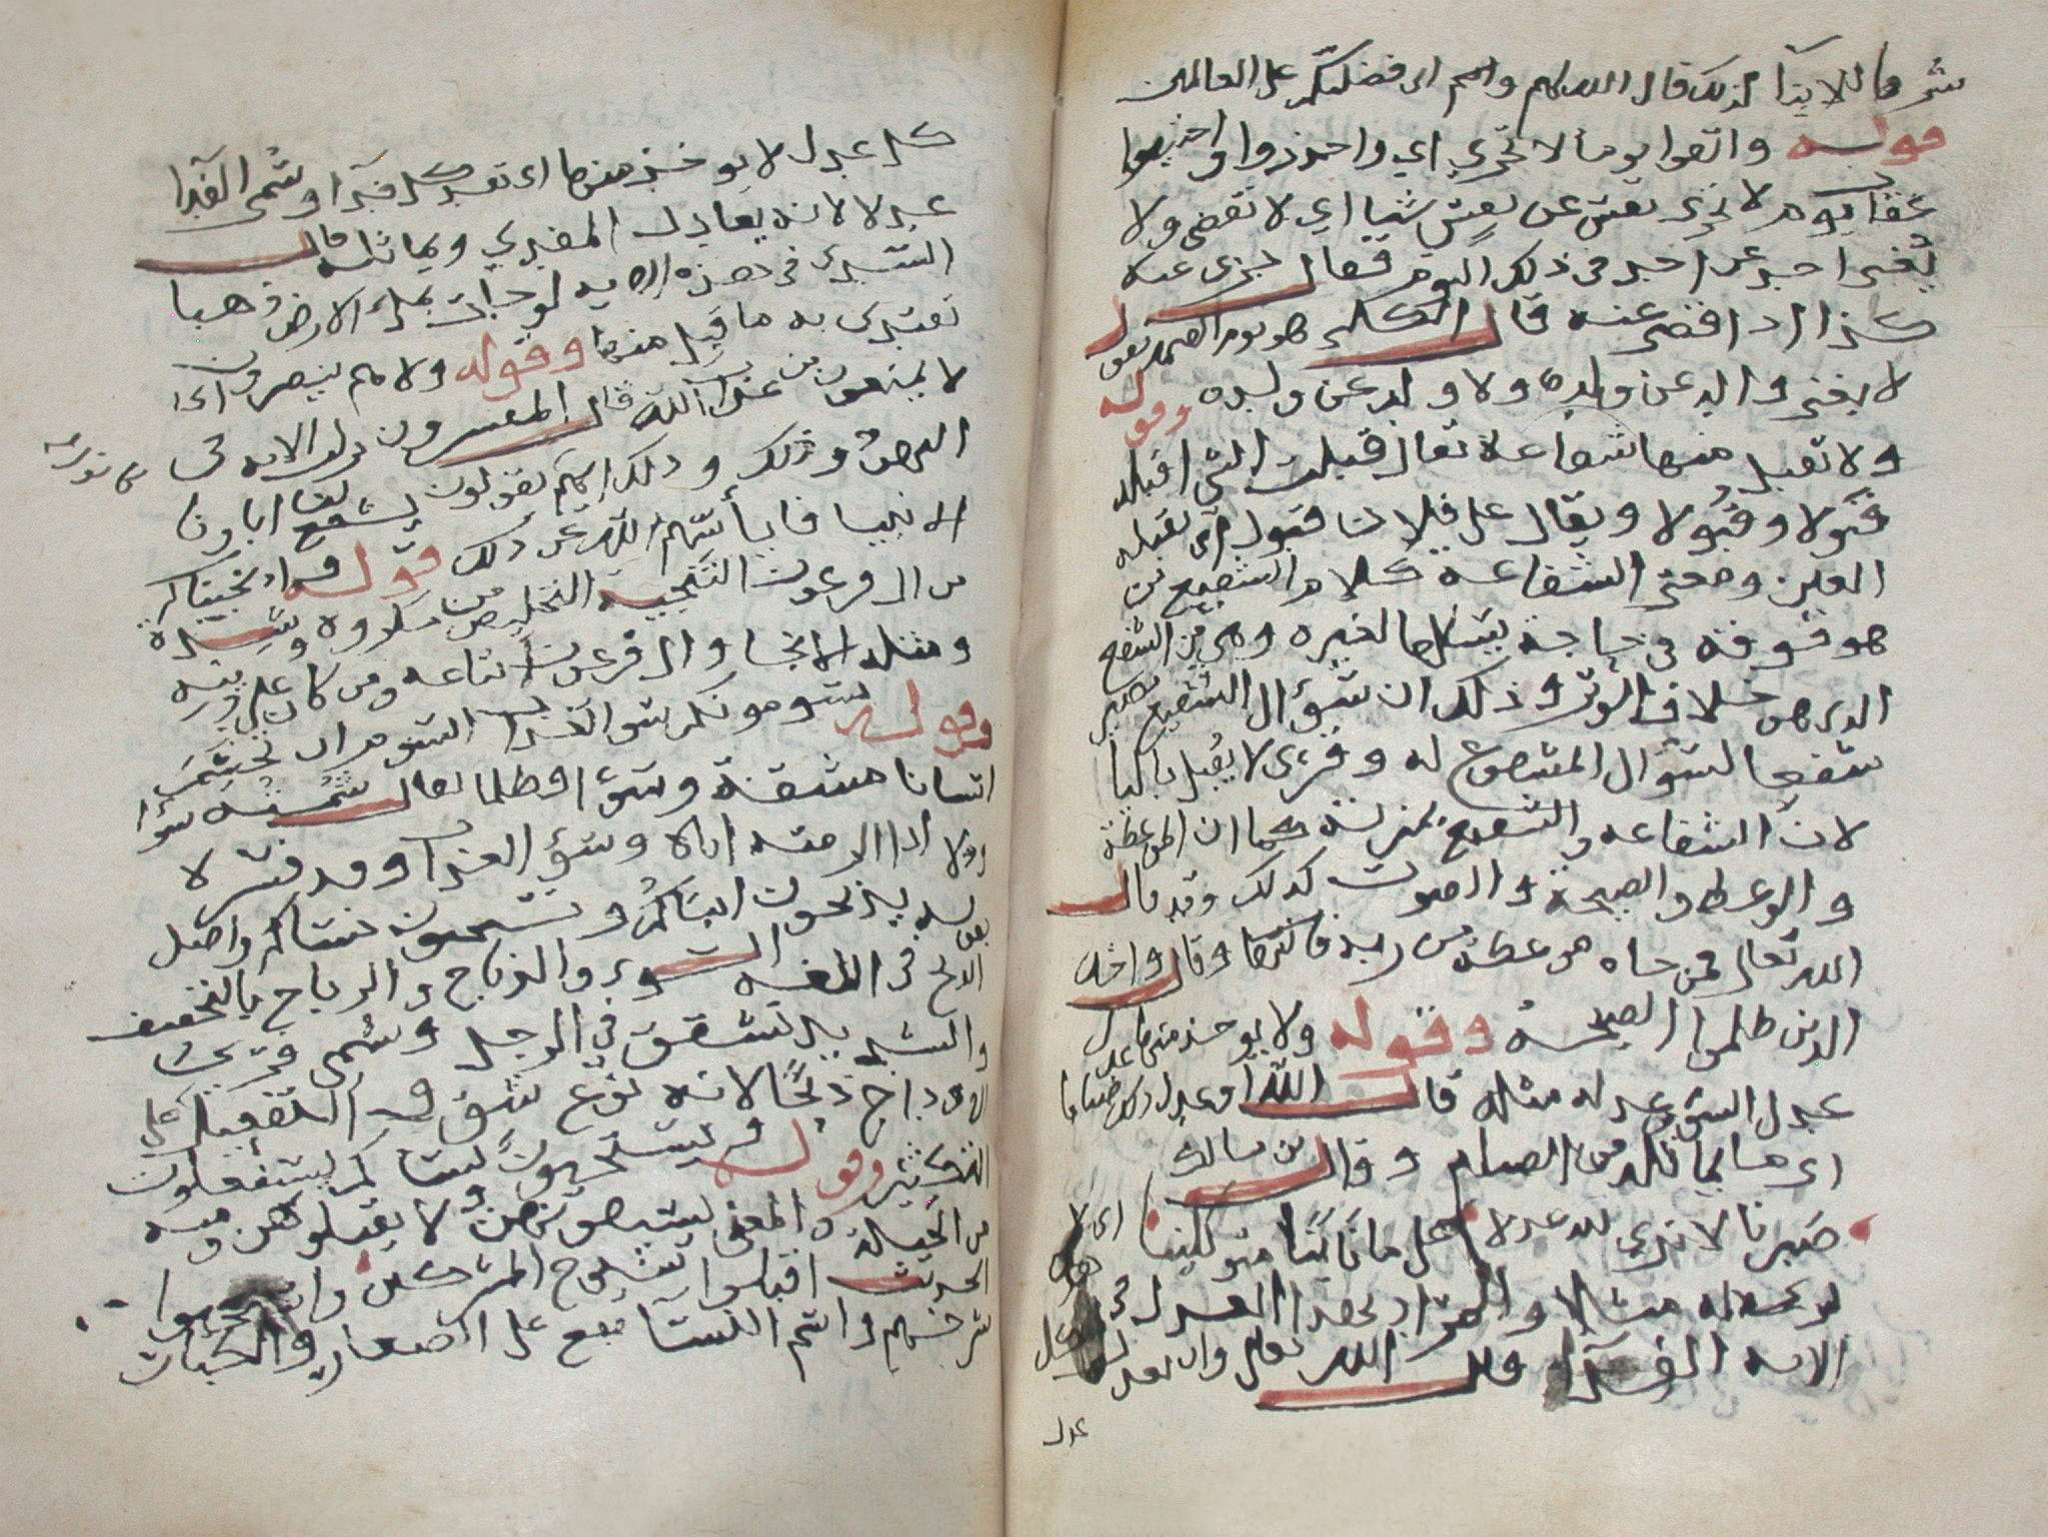 شرفا للابآ لذلك قال الله لهم واني فضلتكم على العالمين
قوله واتقوا يوما لا تجزي اي واحذروا واخشوا
عقاب يوم لا تجزى نفس عن نفس شيا اي لا تقضي ولا
تغني احد عن احد في ذلك اليوم يقال جزى عنه
كذا اذا قضى عنه قال الكلبي هو يوم القيمة يقول
لا يغني والد عن ولده ولا ولد عن والده وقوله
ولا تقبل منها شفاعة يقال قبلت الشي اقبله
قبولا وقبولا ويقال على فلان قبول اي تقبله
العين ومعنى الشفاعة كلام الشفيع لمن
هو فوقه في حاجة يسئلها لغيره وهي من الشفع
الذي هو خلاف الوتر وذلك ان سؤال الشفيع يصير
شفعا لسؤال المشفوع له وقرئ لا يقبل باليا
لان الشفاعه والتشفع بمنزلة كما ان الموعظة
والوعظ والصيحة والصوت كذلك وقد قال
الله تعالى فمن جاه موعظة من ربه فانتهى وقال واخذ
الذين ظلموا الصيحة وقوله ولا يوخذ منها عدل
عدل الشي وعدله مثله قال الله او عدل ذلك صياما
اي ما يماثله من الصيام وقال بن مالك
صبرنا لا نرى لله عدلا على ما نابنا متوكلينا اي لا
نرى له مثلا والمراد بهذا العدل في
الايه الفدآ قال الله تعالى وان تعدل كل
عدل
كل عدل لا يوخذ منها اي تفد كل فدآ وسمي الفدا
عدلا لانه يعادل المفدي ويماثله قال
السدي في هذه الايه لو جات بملء الارض ذهبا
تفتدي به ما قبل منها وقوله ولا هم ينصرون اي
لا يمنعون من عذاب الله قال المفسرون نزلت الايه في
اليهود وذلك انهم يقولون يشفع لنا اباونا
الانبيا فايأسهم الله عن ذلك قوله واذ نجيناكم
من ال فرعون التنجية التخليص من مكروه وشدة
ومثله الانجا وال فرعون اتباعه ومن كان على دينه
وقوله يسومونكم سو العذاب السوم ان تجشم
انسانا مشقة وسوا وظلما يقال سمته سوا
اذا الزمته اياه وسؤ العذاب وقد فسر لا
بقوله يذبحون ابناكم ويستحيون نساكم واصل
الذبح في اللغة الشق والذباح والذباح بالتخفيف
والتشديد تشقق في الرجل وسمي فري
الاوداج ذبحا لانه نوع شق والتفعيل على
التكثير وقوله ويستحيون نساكم يستفعلون
من الحياة والمعنى يستبقونهن ولا يقتلونهن ومنه
الحديث اقتلوا شيوخ المشركين واستحيوا
شرخهم واسم النسآ يقع على الصغار والكبار